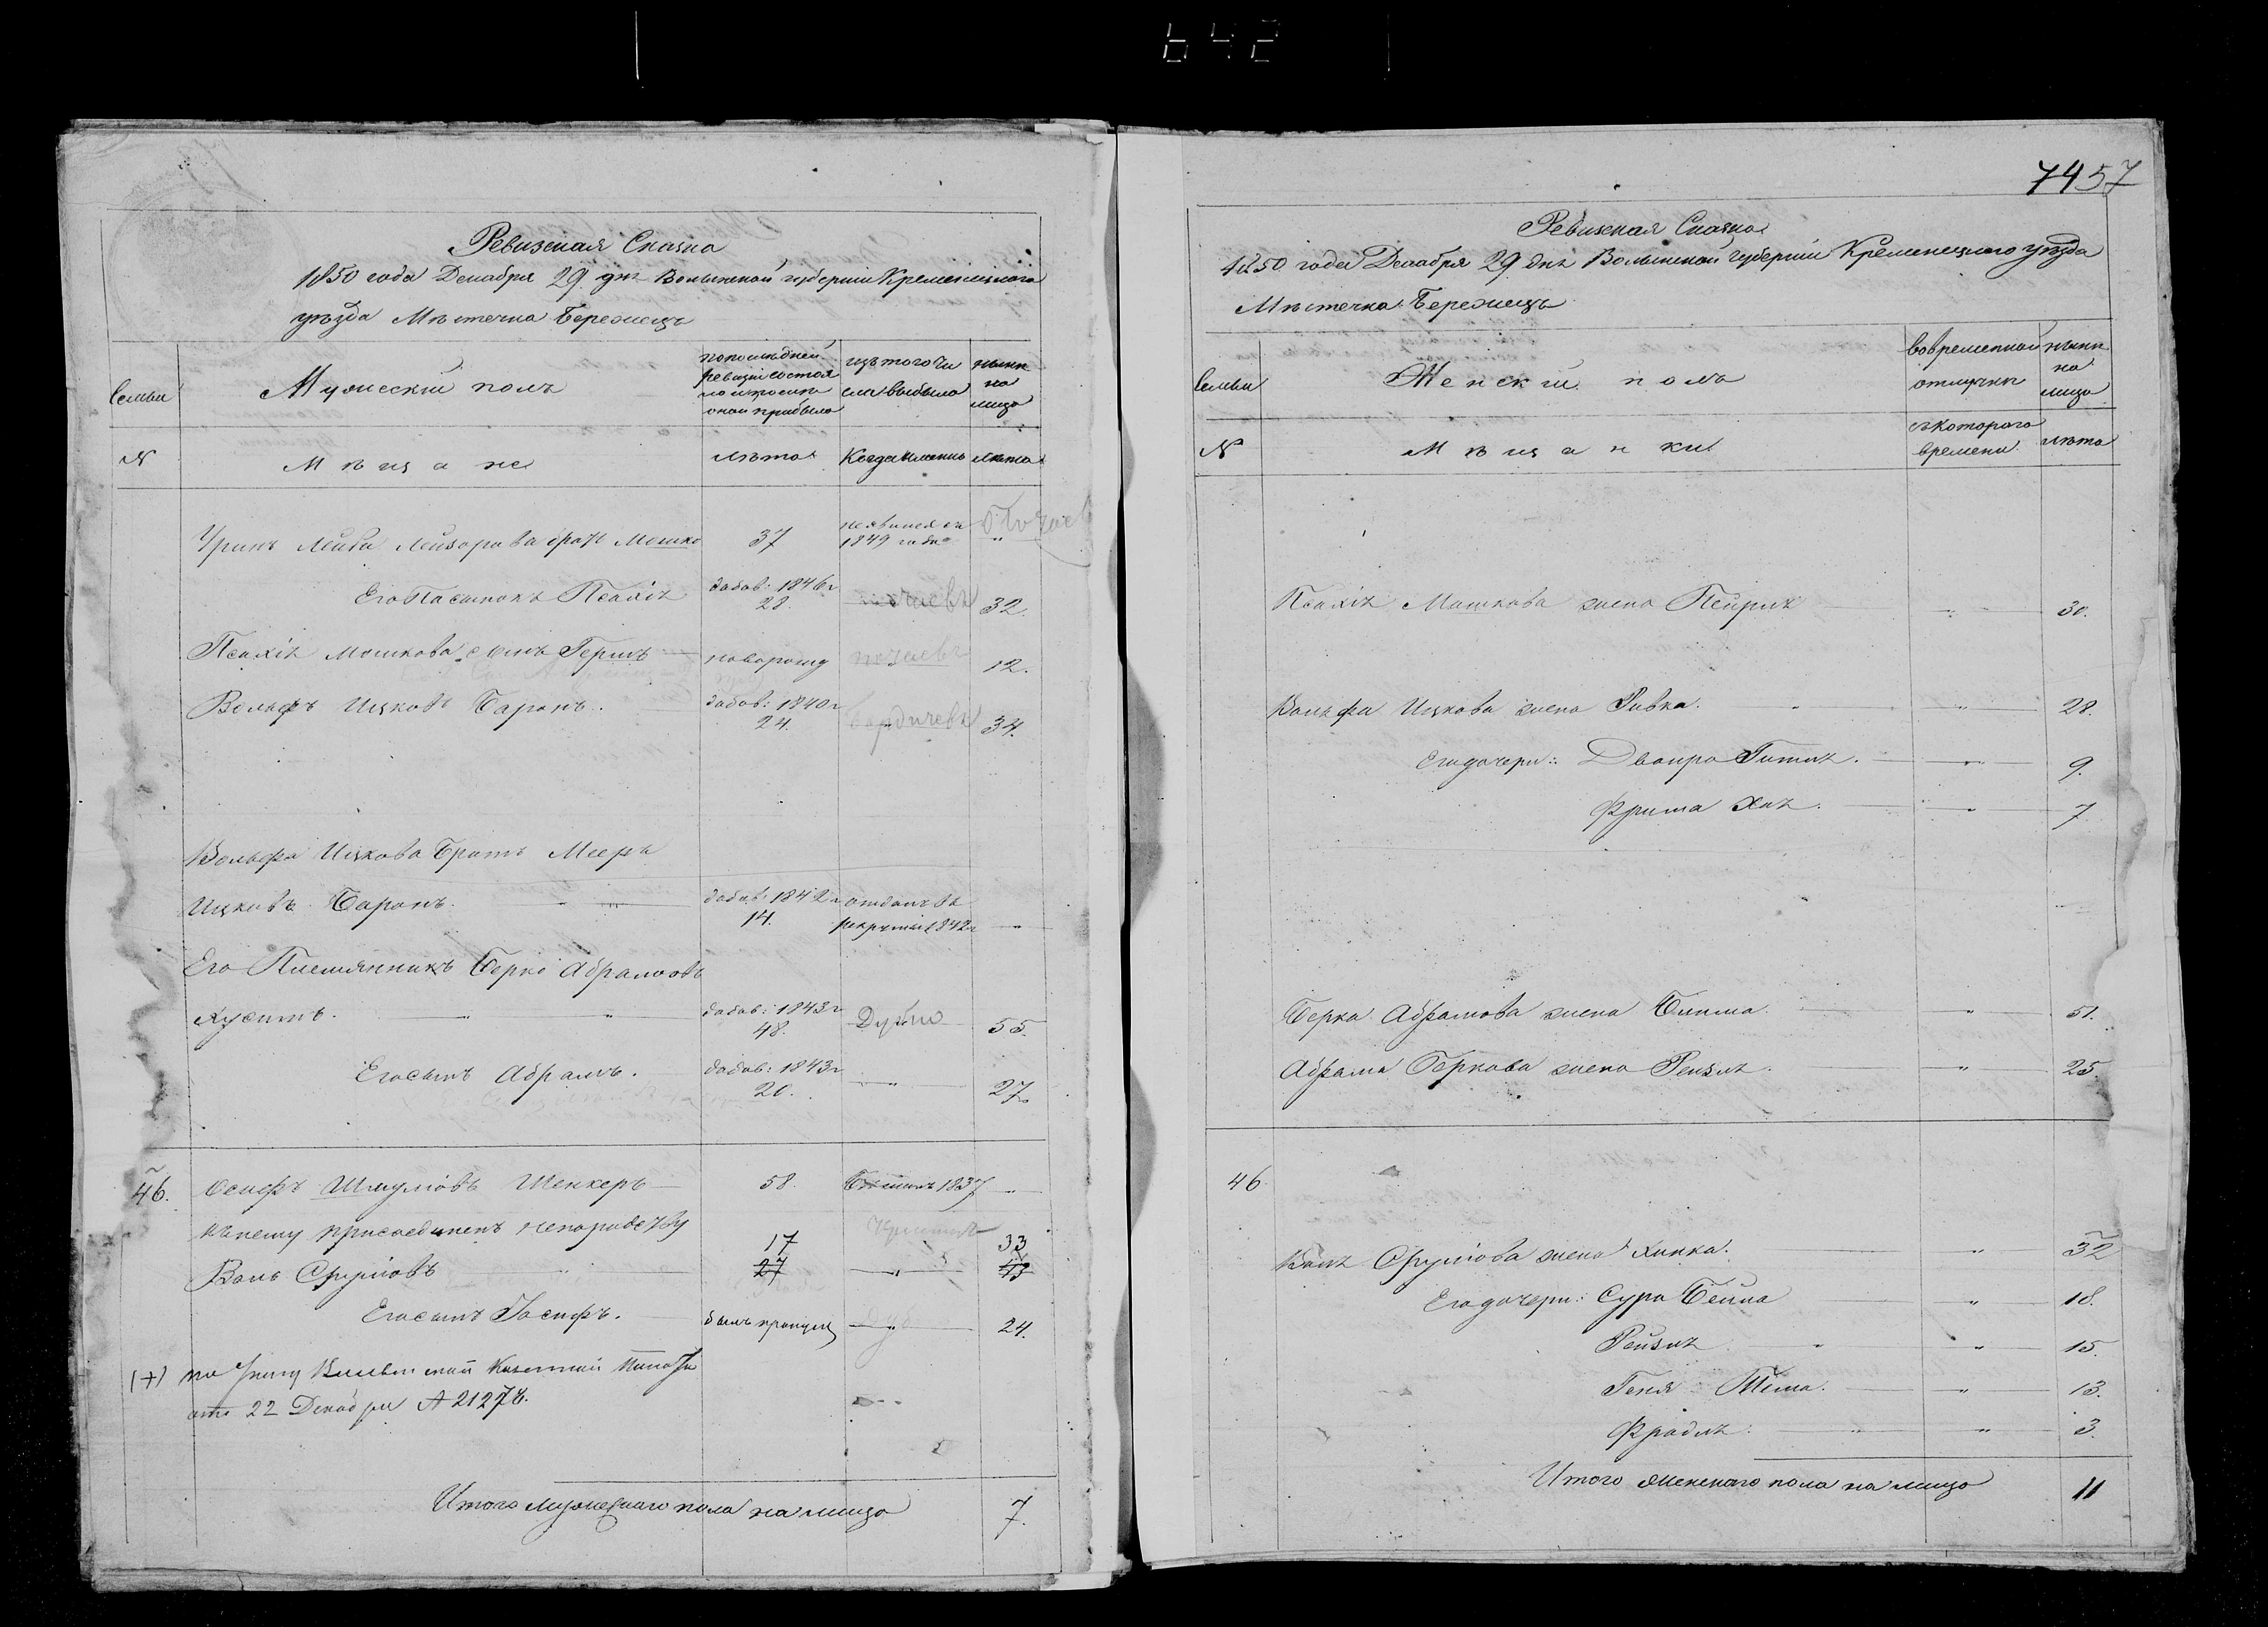 642
Ревизская Сказка
1850 года Декабря 29 дня Волынской губернии Кременецкаго
уѣзда Мѣстечка Бережецъ
Семьи
Мужескій полъ
по последней ревизіи состояло и после оной прибыло
изъ того числа выбыло
нынѣ на лицо
№
Мѣщане
лѣта
Когда именно
лѣта
Лейба Лейзорова братъ Мошко 37 неявился съ 1849 года "
Его Пасынокъ Псахія добав: 1846 г 28. 32.
Псахія Мошкова сынъ Гершъ новорожд 12.
Вольфъ Ицковъ Баронъ. добав: 1840 г 24. бердичевъ 34.
Вольфа Ицкова Братъ Мееръ
Ицковъ Баронъ. добав: 1842 г 14. отданъ въ рекруты 1842 г
Его Племянникъ Берко Абрамовъ
Хуситъ. добав: 1843 г 48. Дубно 55.
Его сынъ Абрамъ. добав: 1843 г 20. " 27.
46. Осифъ Шмулювъ Шенкеръ 58. 1837
къ нему присоединенъ непородству 17 33
Воль Сруліовъ 27 " 43
Его сынъ Іосифъ. былъ пропущ " 24.
(+) по Указу Казенной Палаты
отъ 22 Декабря № 21278.
Итого мужескаго пола на лицо 7.
7457
Ревизская Сказка
1850 года Декабря 29 дня Волынской губерніи Кременецкаго уѣзда
Мѣстечка Бережецъ
Семьи
Женскій полъ
во временной отлучкѣ
нынѣ на лицо
№
Мѣщанки
съ котораго времени
лѣта
Псахія Мошкова жена Пейрля " 30.
Вольфа Ицкова жена Ривка. " 28.
Его дочери: Двойра Гитля. " 9.
Фрима Хая. " 7
Берка Абрамова жена Блима " 51.
Абрама Беркова жена Рейзля. " 25.
46
Воля Срулiова жена Хинка. " 32
Его дочери: Сура Бейла " 18.
Рейзля " " 15.
Геня Тема. " 13.
Фрадля. " " 3.
Итого женскаго пола на лицо 11